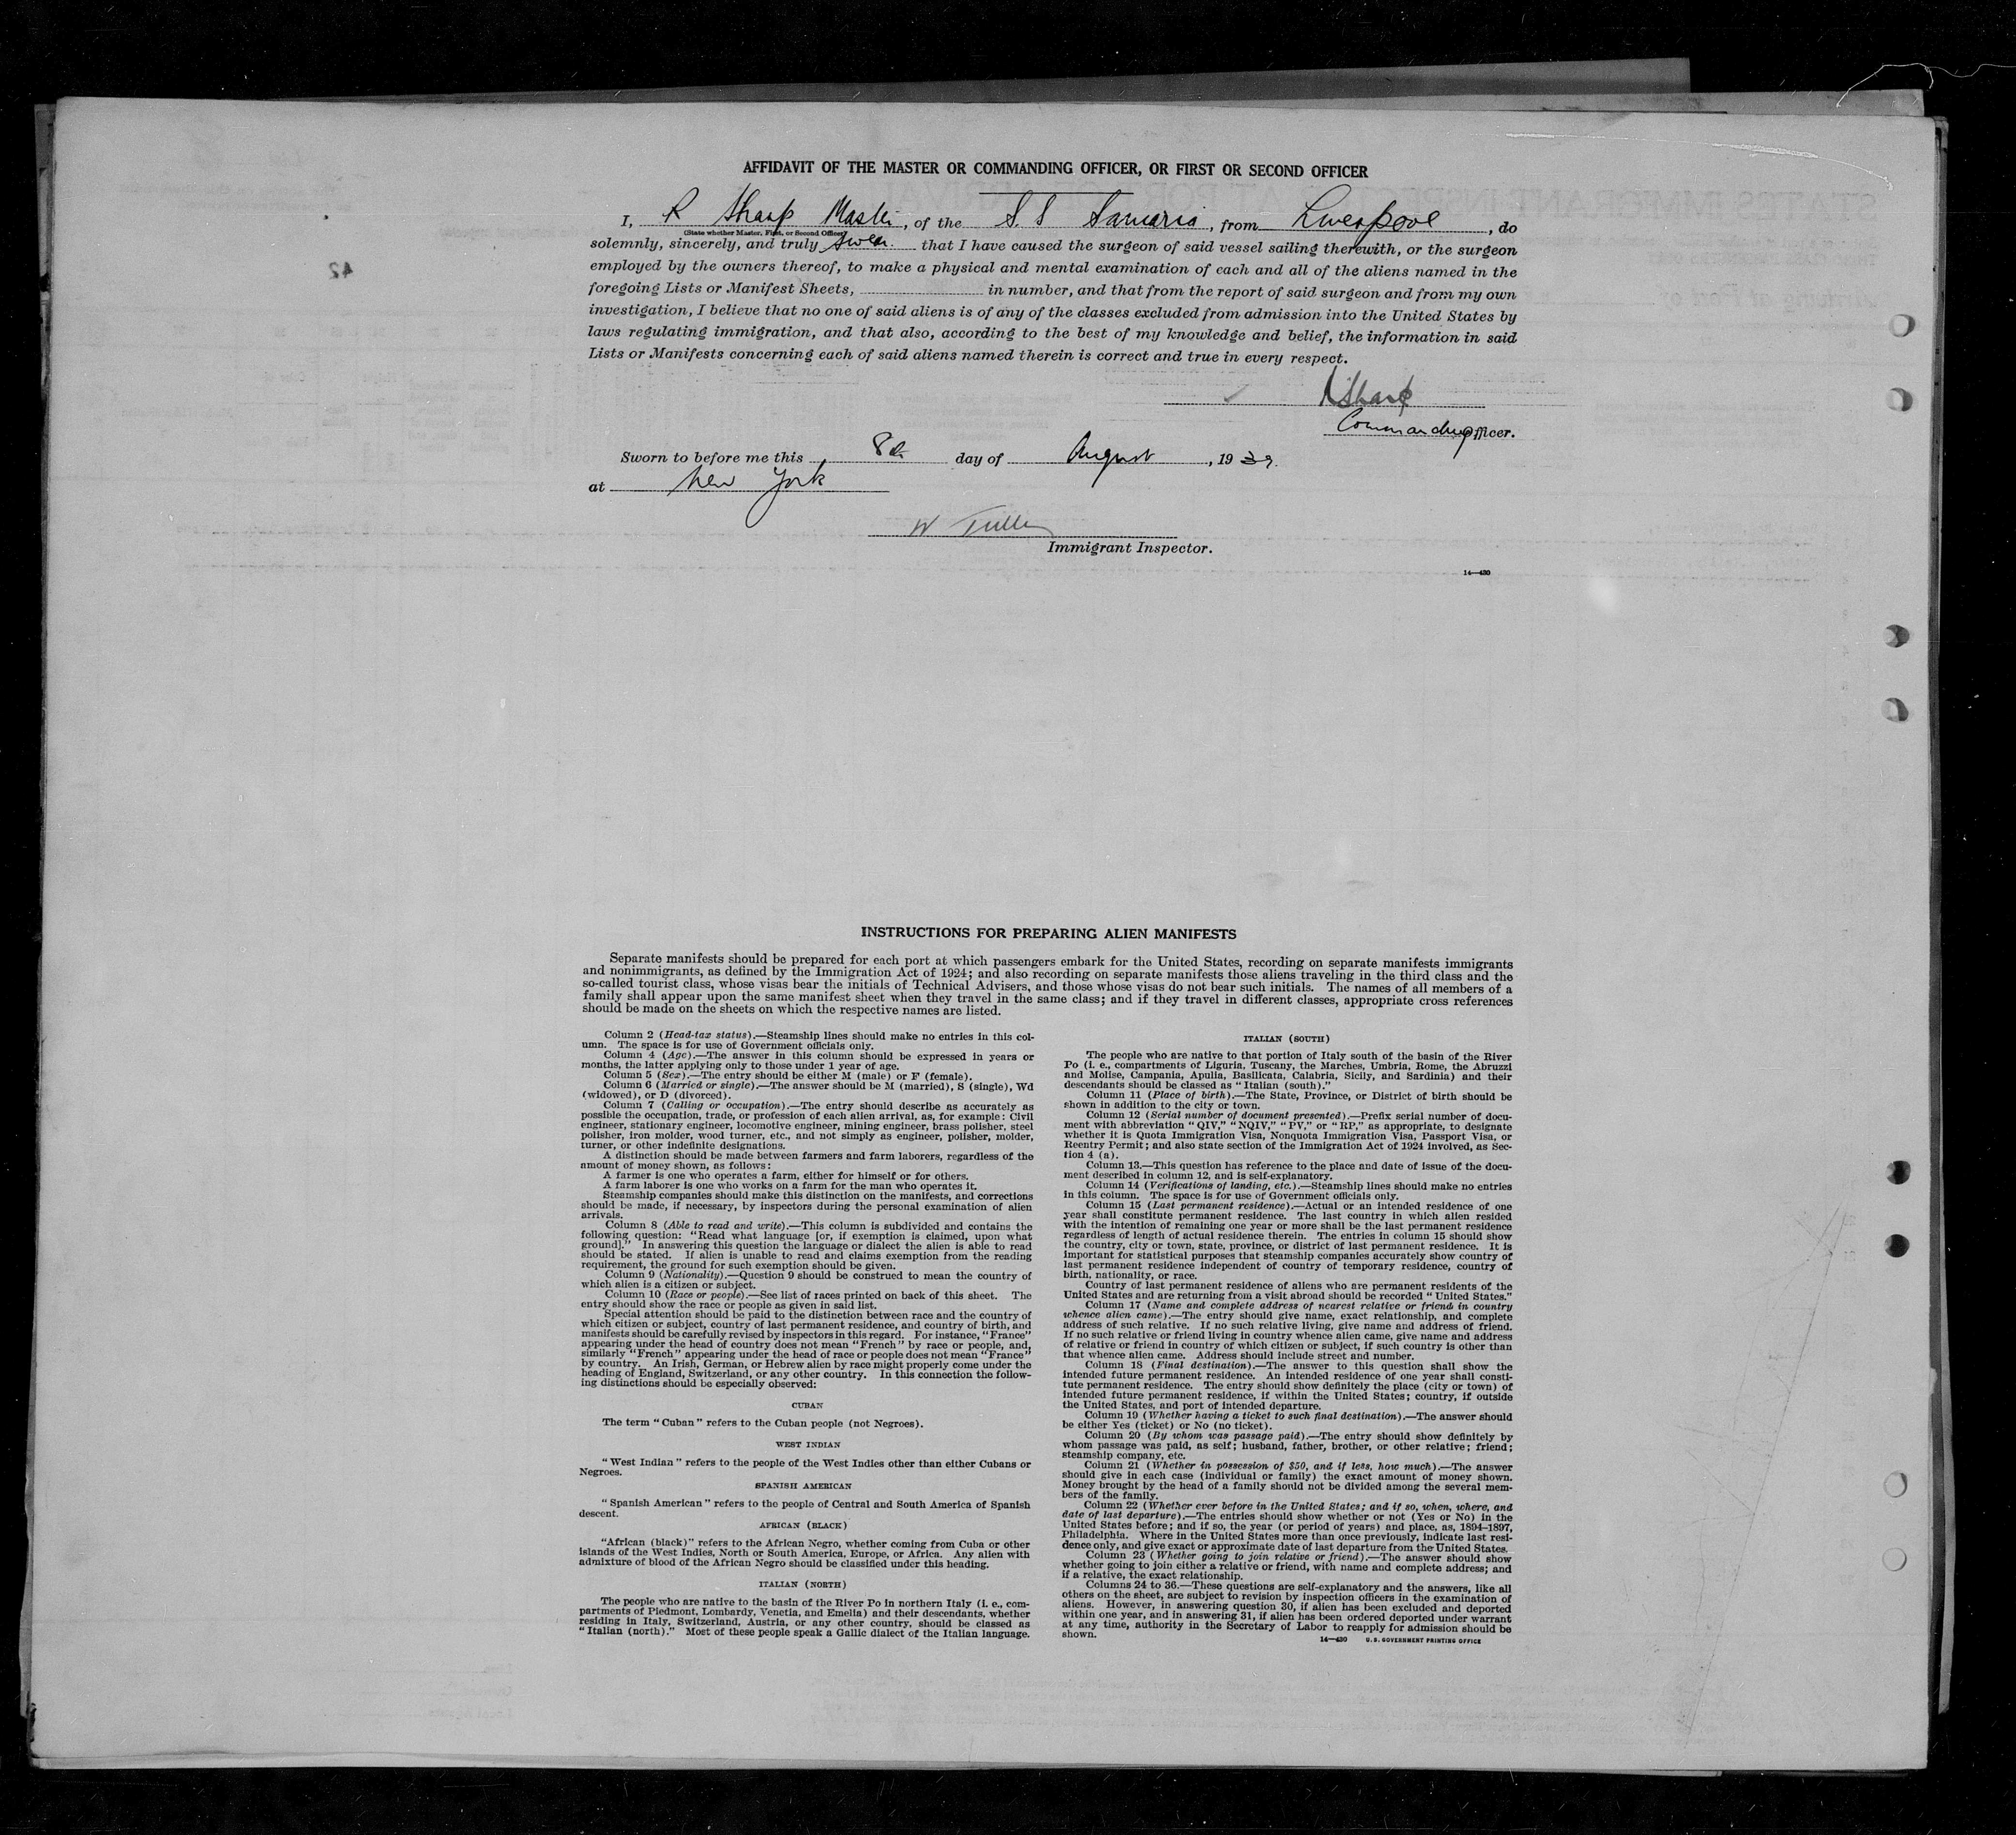 AFFIDAVIT OF THE MASTER OR COMMANDING OFFICER, OR FIRST OR SECOND OFFICER
I, R Sharp Master, of the S.S Samaria, from Liverpool, do
(State whether Master, First, or Second Officer)
solemnly, sincerely, and truly swear that I have caused the surgeon of said vessel sailing therewith, or the surgeon
employed by the owners thereof, to make a physical and mental examination of each and all of the aliens named in the
foregoing Lists or Manifest Sheets, in number, and that from the report of said surgeon and from my own
investigation, I believe that no one of said aliens is of any of the classes excluded from admission into the United States by
laws regulating immigration, and that also, according to the best of my knowledge and belief, the information in said
Lists or Manifests concerning each of said aliens named therein is correct and true in every respect.
R Sharp
Commanding Officer.
Sworn to before me this 8th day of August, 1939.
at New York
W
Immigrant Inspector.
14—430
42
INSTRUCTIONS FOR PREPARING ALIEN MANIFESTS
Separate manifests should be prepared for each port at which passengers embark for the United States, recording on separate manifests immigrants
and nonimmigrants, as defined by the Immigration Act of 1924; and also recording on separate manifests those aliens traveling in the third class and the
so-called tourist class, whose visas bear the initials of Technical Advisers, and those whose visas do not bear such initials. The names of all members of a
family shall appear upon the same manifest sheet when they travel in the same class; and if they travel in different classes, appropriate cross references
should be made on the sheets on which the respective names are listed.
Column 2 (Head-tax status).—Steamship lines should make no entries in this col-
umn. The space is for use of Government officials only.
Column 4 (Age).—The answer in this column should be expressed in years or
months, the latter applying only to those under 1 year of age.
Column 5 (Sex).—The entry should be either M (male) or F (female).
Column 6 (Married or single).—The answer should be M (married), S (single), Wd
(widowed), or D (divorced).
Column 7 (Calling or occupation).—The entry should describe as accurately as
possible the occupation, trade, or profession of each alien arrival, as, for example: Civil
engineer, stationary engineer, locomotive engineer, mining engineer, brass polisher, steel
polisher, iron molder, wood turner, etc., and not simply as engineer, polisher, molder,
turner, or other indefinite designations.
A distinction should be made between farmers and farm laborers, regardless of the
amount of money shown, as follows:
A farmer is one who operates a farm, either for himself or for others.
A farm laborer is one who works on a farm for the man who operates it.
Steamship companies should make this distinction on the manifests, and corrections
should be made, if necessary, by inspectors during the personal examination of alien
arrivals.
Column 8 (Able to read and write).—This column is subdivided and contains the
following question: "Read what language [or, if exemption is claimed, upon what
ground]." In answering this question the language or dialect the alien is able to read
should be stated. If alien is unable to read and claims exemption from the reading
requirement, the ground for such exemption should be given.
Column 9 (Nationality).—Question 9 should be construed to mean the country of
which alien is a citizen or subject.
Column 10 (Race or people).—See list of races printed on back of this sheet. The
entry should show the race or people as given in said list.
Special attention should be paid to the distinction between race and the country of
which citizen or subject, country of last permanent residence, and country of birth, and
manifests should be carefully revised by inspectors in this regard. For instance, "France"
appearing under the head of country does not mean "French" by race or people, and,
similarly "French" appearing under the head of race or people does not mean "France"
by country. An Irish, German, or Hebrew alien by race might properly come under the
heading of England, Switzerland, or any other country. In this connection the follow-
ing distinctions should be especially observed:
CUBAN
The term "Cuban" refers to the Cuban people (not Negroes).
WEST INDIAN
"West Indian" refers to the people of the West Indies other than either Cubans or
Negroes.
SPANISH AMERICAN
"Spanish American" refers to the people of Central and South America of Spanish
descent.
AFRICAN (BLACK)
"African (black)" refers to the African Negro, whether coming from Cuba or other
islands of the West Indies, North or South America, Europe, or Africa. Any alien with
admixture of blood of the African Negro should be classified under this heading.
ITALIAN (NORTH)
The people who are native to the basin of the River Po in northern Italy (i. e., com-
partments of Piedmont, Lombardy, Venetia, and Emelia) and their descendants, whether
residing in Italy, Switzerland, Austria, or any other country, should be classed as
"Italian (north)." Most of these people speak a Gallic dialect of the Italian language.
ITALIAN (SOUTH)
The people who are native to that portion of Italy south of the basin of the River
Po (i. e., compartments of Liguria, Tuscany, the Marches, Umbria, Rome, the Abruzzi
and Molise, Campania, Apulia, Basilicata, Calabria, Sicily, and Sardinia) and their
descendants should be classed as "Italian (south)."
Column 11 (Place of birth).—The State, Province, or District of birth should be
shown in addition to the city or town.
Column 12 (Serial number of document presented).—Prefix serial number of docu-
ment with abbreviation "QIV," "NQIV," "PV," or "RP," as appropriate, to designate
whether it is Quota Immigration Visa, Nonquota Immigration Visa, Passport Visa, or
Reentry Permit; and also state section of the Immigration Act of 1924 involved, as Sec-
tion 4 (a).
Column 13.—This question has reference to the place and date of issue of the docu-
ment described in column 12, and is self-explanatory.
Column 14 (Verifications of landing, etc.).—Steamship lines should make no entries
in this column. The space is for use of Government officials only.
Column 15 (Last permanent residence).—Actual or an intended residence of one
year shall constitute permanent residence. The last country in which alien resided
with the intention of remaining one year or more shall be the last permanent residence
regardless of length of actual residence therein. The entries in column 15 should show
the country, city or town, state, province, or district of last permanent residence. It is
important for statistical purposes that steamship companies accurately show country of
last permanent residence independent of country of temporary residence, country of
birth, nationality, or race.
Country of last permanent residence of aliens who are permanent residents of the
United States and are returning from a visit abroad should be recorded "United States."
Column 17 (Name and complete address of nearest relative or friend in country
whence alien came).—The entry should give name, exact relationship, and complete
address of such relative. If no such relative living, give name and address of friend.
If no such relative or friend living in country whence alien came, give name and address
of relative or friend in country of which citizen or subject, if such country is other than
that whence alien came. Address should include street and number.
Column 18 (Final destination).—The answer to this question shall show the
intended future permanent residence. An intended residence of one year shall consti-
tute permanent residence. The entry should show definitely the place (city or town) of
intended future permanent residence, if within the United States; country, if outside
the United States, and port of intended departure.
Column 19 (Whether having a ticket to such final destination).—The answer should
be either Yes (ticket) or No (no ticket).
Column 20 (By whom was passage paid).—The entry should show definitely by
whom passage was paid, as self; husband, father, brother, or other relative; friend;
steamship company, etc.
Column 21 (Whether in possession of $50, and if less, how much).—The answer
should give in each case (individual or family) the exact amount of money shown.
Money brought by the head of a family should not be divided among the several mem-
bers of the family.
Column 22 (Whether ever before in the United States; and if so, when, where, and
date of last departure).—The entries should show whether or not (Yes or No) in the
United States before; and if so, the year (or period of years) and place, as, 1894–1897,
Philadelphia. Where in the United States more than once previously, indicate last resi-
dence only, and give exact or approximate date of last departure from the United States.
Column 23 (Whether going to join relative or friend).—The answer should show
whether going to join either a relative or friend, with name and complete address; and
if a relative, the exact relationship.
Columns 24 to 36.—These questions are self-explanatory and the answers, like all
others on the sheet, are subject to revision by inspection officers in the examination of
aliens. However, in answering question 30, if alien has been excluded and deported
within one year, and in answering 31, if alien has been ordered deported under warrant
at any time, authority in the Secretary of Labor to reapply for admission should be
shown.
14—430 U.S. GOVERNMENT PRINTING OFFICE